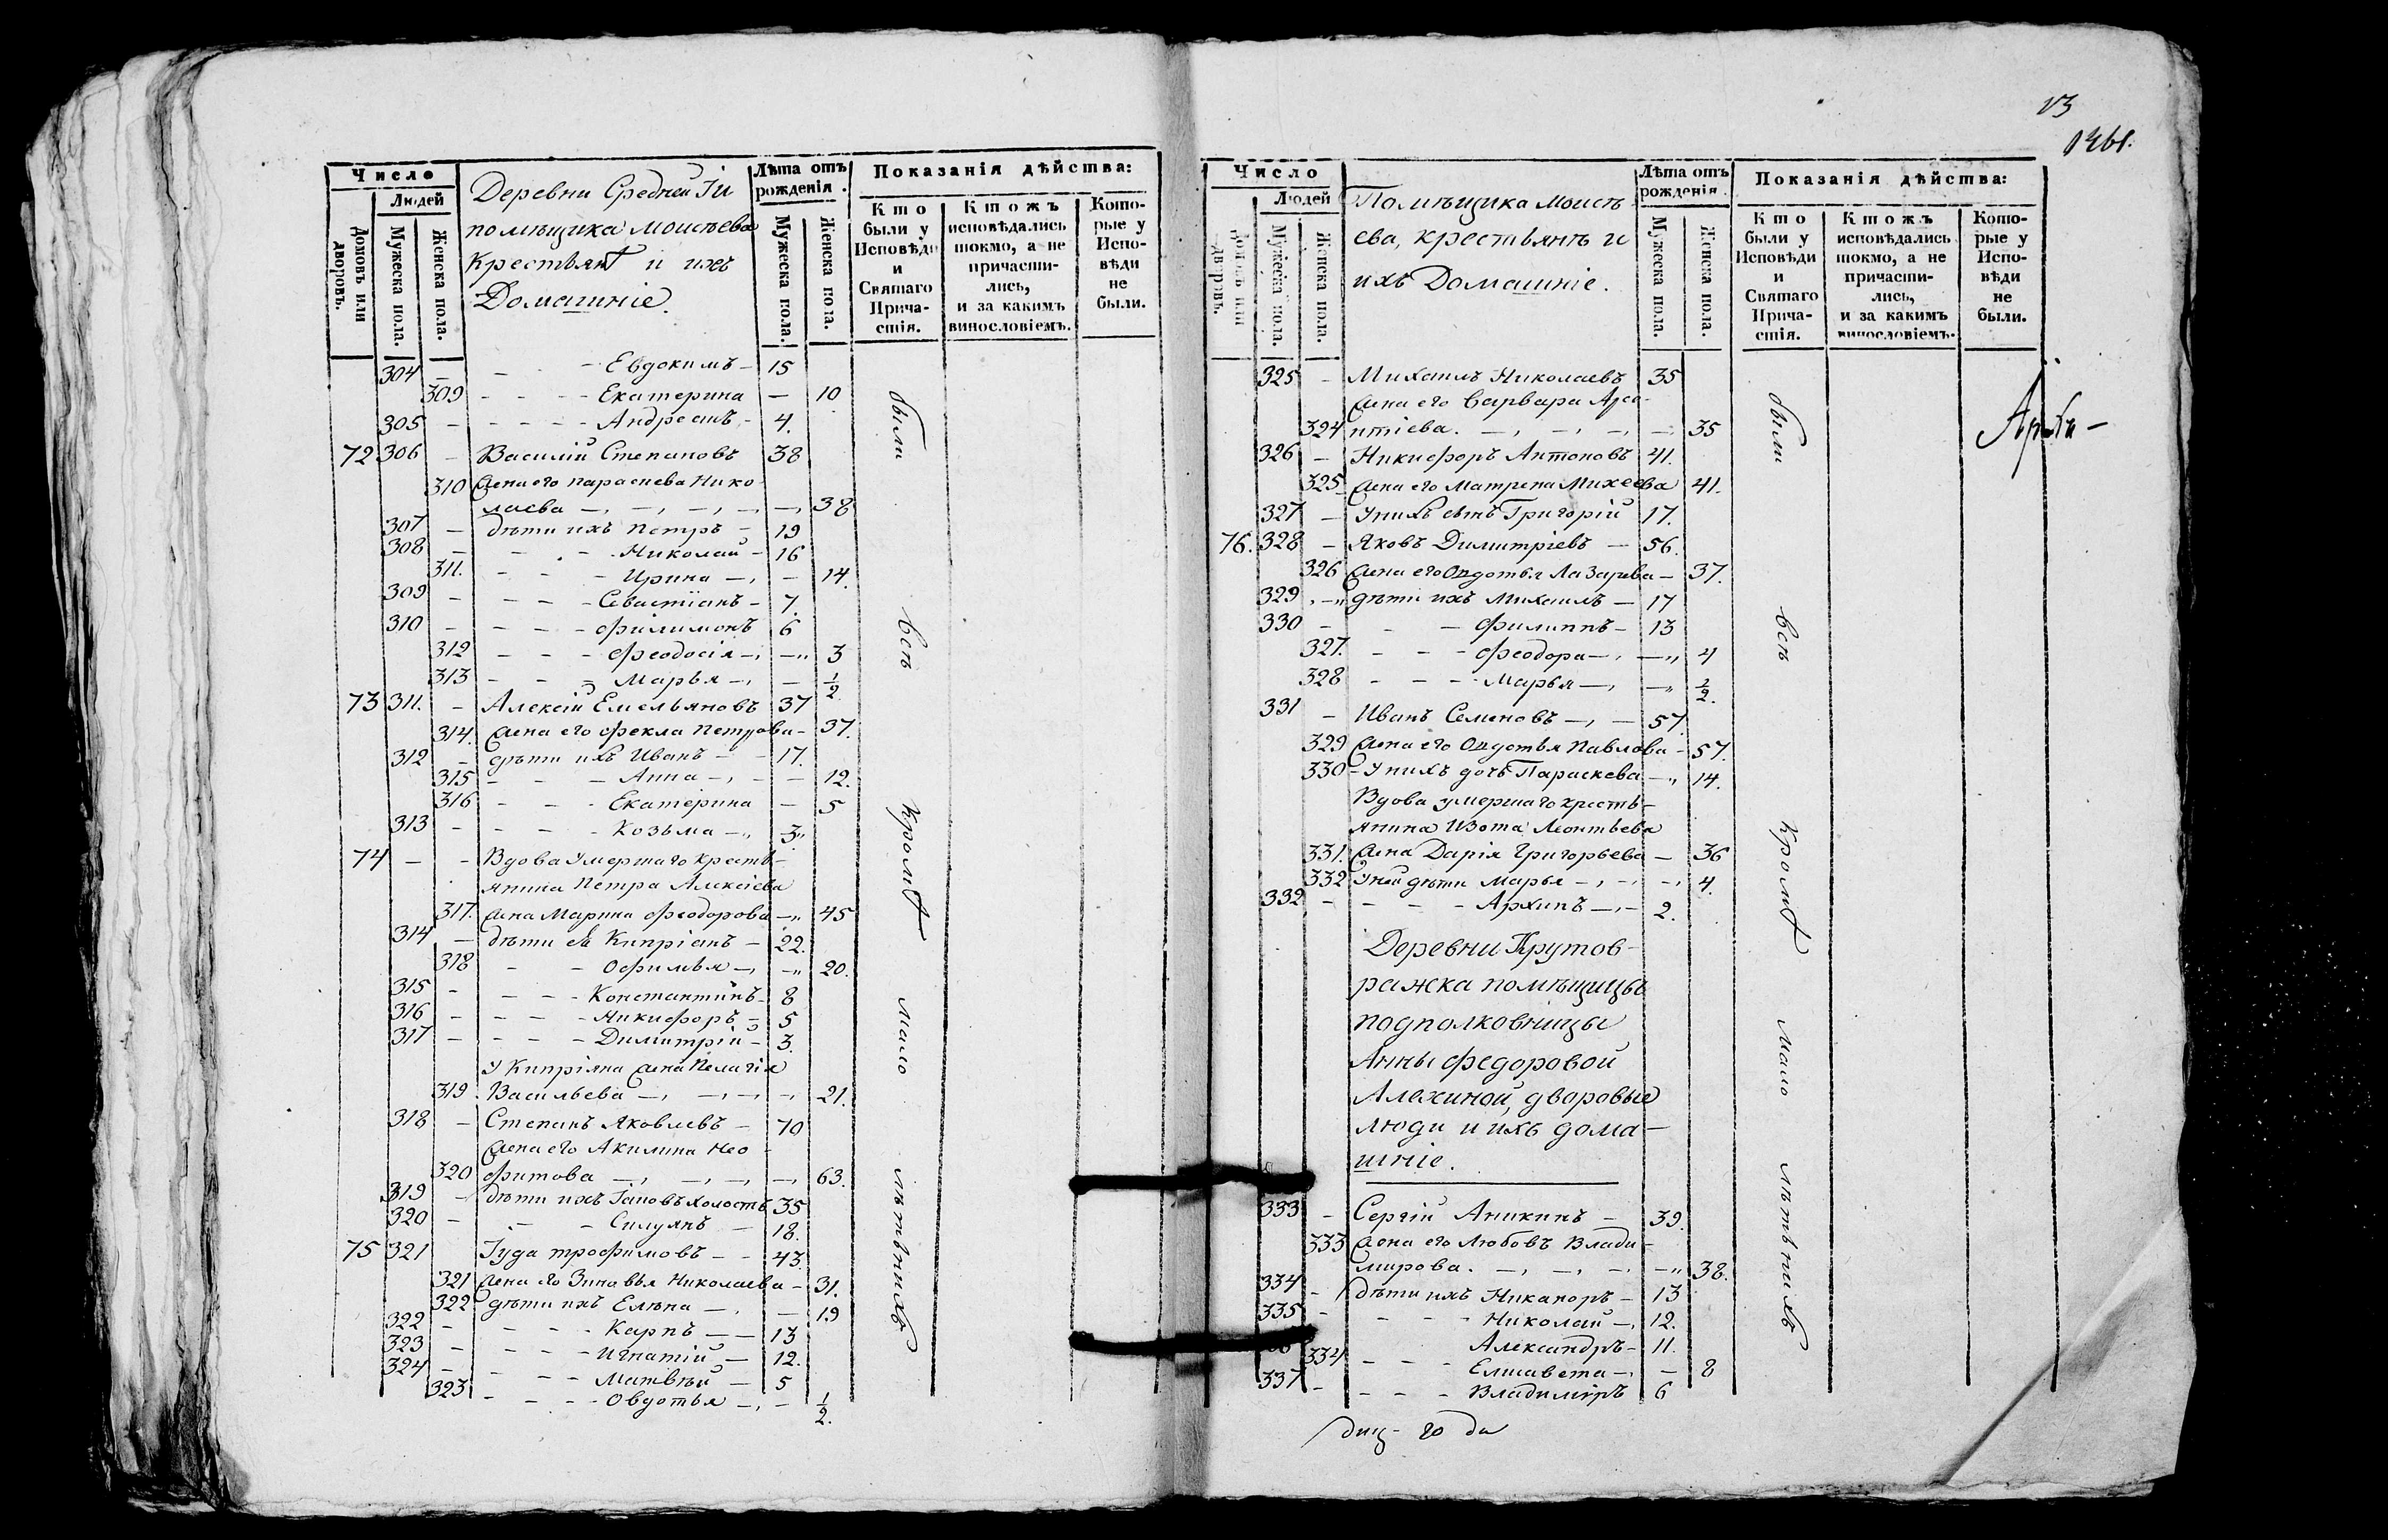 Число
Людей
Домовъ или дворовъ.
Мужеска пола.
Женска пола.
Деревни Средней Ги
помѣщика моисѣева
Крестьянѣ и ихъ
Домашніе.
Лѣта отъ рожденія.
Мужеска пола.
Женска пола.
Показанія дѣйства:
Кто были у Исповѣди и Святаго Причастія.
Кто жъ исповѣдались токмо, а не причастились, и за какимъ винословіемъ.
Которые у Исповѣди не были.
304 - - - Евдокимъ - 15
309 - - - Екатерина - 10
305 - - - - Андреанъ - 4.
72 306 - Василій Степановъ 38
310 жена его параскева Нико
лаева - - - - 38
307 - дѣти ихъ Петръ - 19
308 - - - Николай - 16
311. - - - Ирина - - 14.
309 - - - - Севастіанъ - 7.
310 - - - - филимонъ 6
312 - - - феодосія - - 3
313 - - - Марья - - 1/2.
73 311. - Алексій Емельяновъ 37
314. жена его фекла Петрова - 37.
312 - дѣти ихъ Иванъ - - 17.
315 - - - Анна - - - 12.
316 - - - Екатерина - 5
313 - - - - Козьма - 3
74 - - Вдова умершаго кресть-
янина Петра Алексіева
317. жена Марина феодорова - 45
314 - дѣти ея Кипріанъ - 22.
318 - - Офимья - - 20.
315 - - - - Константинъ - 8
316 - - - - Никифоръ - 5
317 - - - - Димитрій - 3.
У Кипріяна жена Пелагія
319 Васильева - - - - 21.
318 - Степанъ Яковлевъ - 70
жена его Акилина Нео-
320 фитова - - - - 63.
319 - дѣти ихъ Іаковъ холостъ 35
320 - - - Силуянъ - 18.
75 321 Іуда трофимовъ - - 43
321 жена его Зиновья Николаева - 31.
322 дѣти ихъ Елѣна - - 19
322 - - - - Карпъ - - 13
323 - - - - Игнатій - 12.
324 - - - - Матвѣй - 5
323 - - - - Овдотья - - 1/2.
были
всѣ
Кромѣ
мало
лѣтныхъ
13
Число
Людей
Домовъ или дворовъ.
Мужеска пола.
Женска пола.
Помѣщика моисѣ-
ева, крестьянъ и
ихъ Домашніе.
Лѣта отъ рожденія.
Мужеска пола.
Женска пола.
Показанія дѣйства:
Кто были у Исповѣди и Святаго Причастія.
Кто жъ исповѣдались токмо, а не причастились, и за какимъ винословіемъ.
Которые у Исповѣди не были.
325 - Михаилъ Николаевъ 35
жена его Варвара
324 нтіева. - - - - 35
326 - Никифоръ Антоновъ 41.
325 жена его Матрена Михеева 41.
327 - У нихъ сынъ Григорій 17.
76. 328 - Яковъ Димитріевъ - 56.
326 жена его Овдотья Лазарева - 37.
329 - дѣти ихъ Михаилъ - 17
330 - - - филиппъ - 13
327. - - - феодора - - 4
328 - - - Марья - - 1/2.
331 - Иванъ Семеновъ - - 57.
329 жена его Овдотья Павлова - 57.
330 - У нихъ дочь Параскева - 14.
Вдова умершаго кресть-
янина Изота Леонтьева
331. жена Дарія Григорьева - 36
332 У ней дѣти Марья - - - 4.
332 - - - - Архипъ - - 2.
Деревни Крутов-
ражка помѣщицы
подполковницы
Анны федоровой
Алехиной, дворовые
люди и ихъ дома-
шніе.
333 - Сергій Аникинъ - 39.
333 жена его Любовъ Влади-
мирова. - - - - 38.
334 - дѣти ихъ Никаноръ - 13
335 - - - - Николай - 12.
Александръ - 11.
334 - - - Елисавета - - 8
337 - - - - Владиміръ 6
были
всѣ
Кромѣ
мало
лѣтныхъ